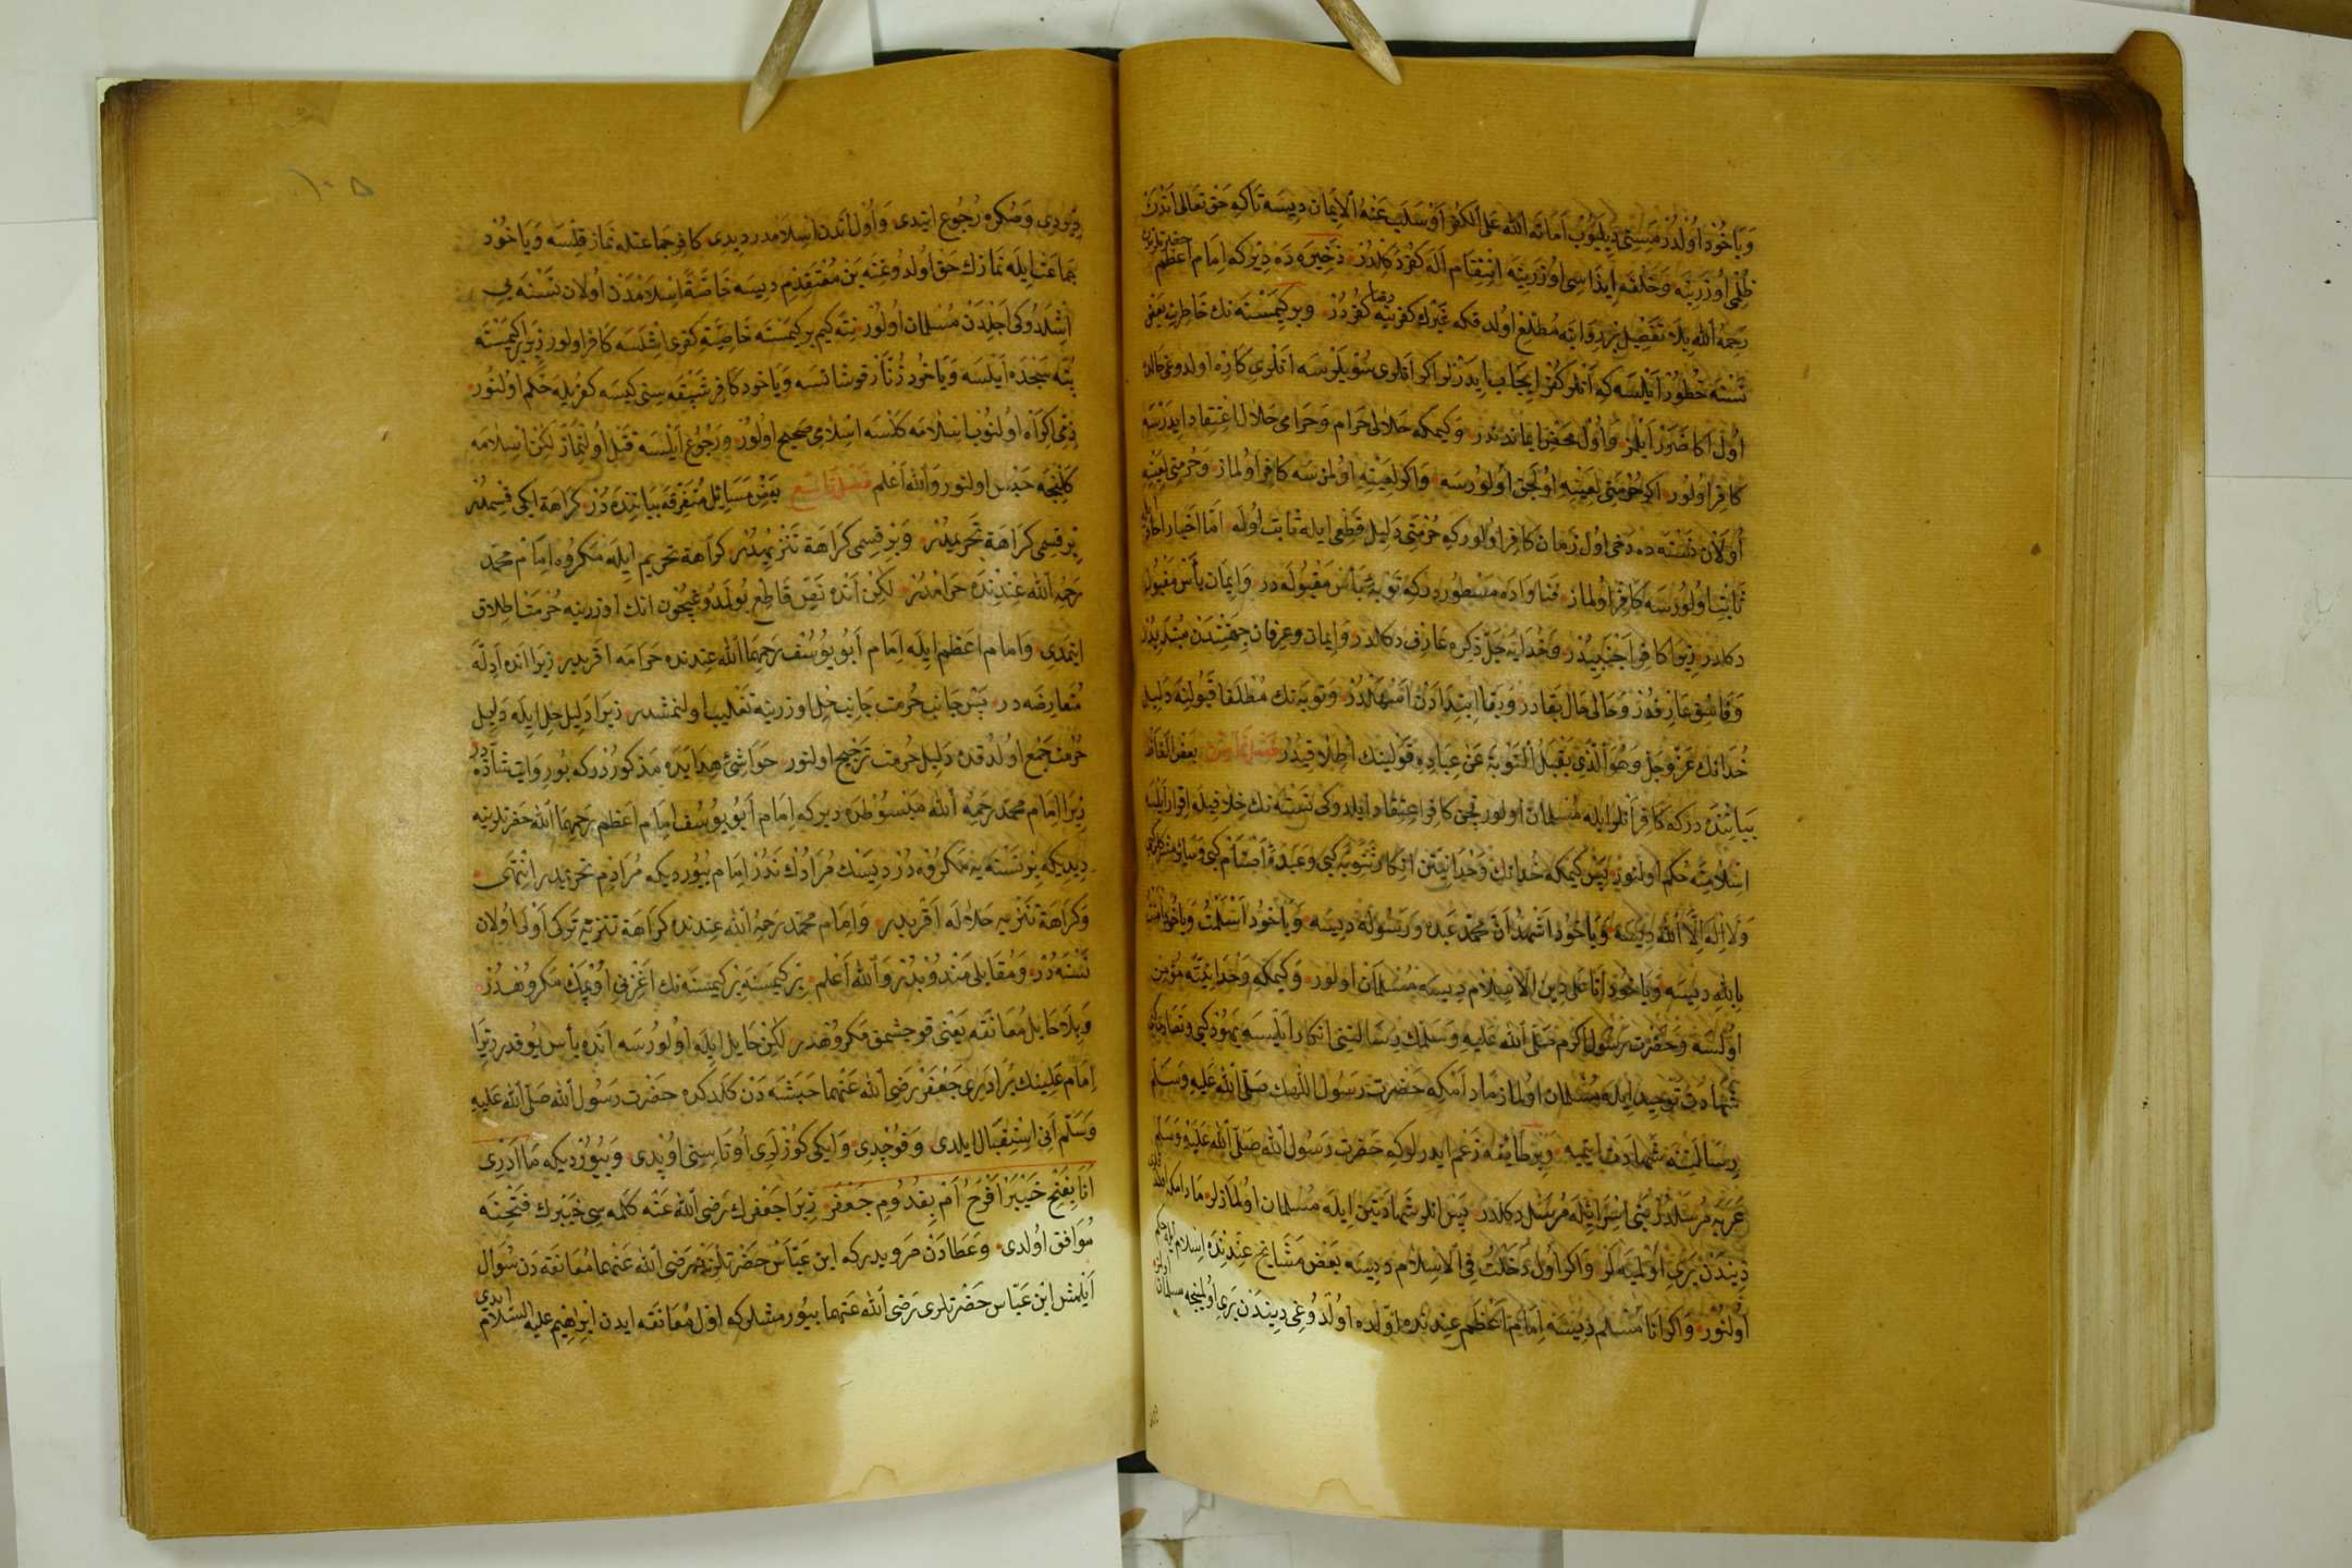 وَيَا خُوذ اُولدُرمَسِنى دِيلَيُوبْ اَمَاتَه اللّٰه عَلَى الْكُفْرِ اَوْ سَلَبَ عَنْهُ الْاِيمَان دِيسَه تَا كِه حَق تَعَالٰى اَنْدَنْ
ظُلْمِى اُوزَرِينَه وَخَلْقَه اِيذَاسِى اُوزَرِينَه اِنْتِقَام اَلَه كُفْر دَكِلْدُرْ ذَخِيرَه دَه دِيْركه اِمَام اَعْظَم حضرتلرندن
رَحِمَهُ اللّٰه بِلَا تَفْصِيل بِر رِوَايَتَه مُطَّلِع اُولدقكه غَيْرِك كفرينه رضا كُفُردُرْ وبر كِيمَسْنَه نك خَاطِرِينَه بَعْضِى
نَسْنَه خُطُورْ اَيْلَسَه كِه اَنلر كُفر اِيجَاب ايدَرْلر اكر اَنلرى سُوْيلَرْسَه اَنْلَرِى كَارِه اولدوغى حالده
اُول اَكَا ضَرَرْ اَيْلَمَز وَاُولْ مَحْض ايماندندر وَكيمكه حَلَالِى حَرَام وَحَرَامِى حَلَال اِعْتِقاد ايدَرْسَه
كَافِر اُولُور اكر حُرْمَتِى لِعَيْنِهِ اُولَجَق اُولُورسَه وَاكر لِعَيْنِهِ اولمزسَه كَافِر اُولماز وَحُرمتى لِعَيْنِهِ
اُولَانْ نَسْنَه ده دَخى اول زَمان كَافِر اُولور كه حُرْمَتِى دَلِيل قَطْعِى ايله ثابت اُولَه اَمَّا اَخْبار احاد ايله
ثَابِت اُولُورسَه كَافِر اُولماز فَتَاوَاده مَسْطُوردركه تَوْبَهٔ يَأس مَقْبُولَه در وَاِيمَان يأس مَقبُول
دكلدر زِيرَا كافر اَجنَبِيدُر وَخُدَايَه جَلَّ ذِكْرُه عَارِف دكلدر وَاِيمان وعِرفان جِهَتِندَن مُبْتَدِيدُر
وَفَاسِق عَارِفدُرْ وَحَالى حَال بَقادر وَبَقا اِبتِدَادَنْ اَسْهَلدُرْ وَتوبه نك مُطْلقا قَبُولِنَه دَلِيل
خُدَانك عَزَّ وَجَلَّ وَهُوَ الَّذِى يَقْبَلُ التَّوْبَةَ عَنْ عِبَادِهِ قَوْلينك اِطْلاقيدُر فَصْل ثَامِن بَعض اَلفَاظ
بَيَانِنْدَه دركه كَافِر اَنلر ايله مُسلمان اولور قچن كافر اعتقاد ايلدوكى نَسْنَه نك خِلافيله اِقرار اَيْلَسَه
اِسْلَامِنَه حُكم اولنور پَس كيمكه خُدانك وَحْدَانِيَّتِن انكار ثَنَوِيَّه كبى وَعَبَدَهٔ اَصْنَام كبى
وَلَا اِلٰه اِلَّا اللّٰه ديسه وَيَا خُود اَشْهَدُ اَنَّ مُحَمَّد عَبْدُه وَرَسُولُه ديسَه وَيَا خُود اَسْلَمْتُ وَيَا خود اٰمَنْتُ
بِاللّٰه ديسَه وَيَا خُود اَنَا عَلَى دِينِ الْاِسْلَام ديسَه مُسْلمان اولور وَكيمكه وَحْدَانِيَّتَه مُؤمن
اُولسَه وَحَضْرت رَسُول اكرم صَلَّى اللّٰه عَليهِ وَسَلمك رِسَالتنى انكار اَيْلَسَه يَهُود كبى وَنَصَارى كبى
شهادت توحيد ايله مُسْلمان اولماز مَادامكه حَضْرت رَسُول اللّٰهك صَلَّى اللّٰه عَليهِ وَسَلّم
رِسَالَتْنَه شَهادت ايتميه وَبر طائِفه زَعم ايدرلركه حَضرت رَسُول اللّٰه صَلَّى اللّٰه عَلَيْهِ وَسَلَّم
عَرَبه مُرسَلدُر بَنِى اِسْرَائِيله مُرْسَل دكلدر پَس انلر شَهادَتَيْن ايله مُسلمان اولمازلر مادامكه
دِينندَن بَرِى اُولميَه لَر وَاكر اُول دَخَلْتُ فِى الْاِسْلَام ديسه بَعْض مَشَايخ عِندِندَه اِسلام ايله حكم
اُولنُور وَاكر اَنَا مُسْلم ديسَه اِمام اَعْظَم عِندنده اولده اُولدُوغى ديندَن بَرِى اُولميجه مسلمان اولمز
ديُوردِى وَصكره رُجُوع ايتدى وَاُول اَندن اِسلامدر ديدى كافر جماعتله نماز قِلسَه وَيَا خُود
جَماعَت ايله نمازك حَق اولدوغنه بَن مُعْتَقِدِم ديسَه خَاصَّةً اِسلَامدَنْ اُولان نَسْنَه يى
اِشْلَدُوكى اَجِلْدَنْ مُسلمان اُولور نته كيم بر كيمَسْنَه خَاصَّةً كفرى اِشْلَسَه كافر اولور زِيرَا بر كِيمَسْنَه
پُتَه سَجْدَه اَيلَسَه وَيَا خُود زُنَّار قوشانسَه وَيَا خود كافر شَبْقَه سِنى كيسَه كُفْريله حُكم اُولنور
ذِمِّى اِكْرَاه اُولنُوب اِسلامَه كَلسَه اِسْلَامِى صَحِيح اُولور وَرُجُوع اَيلسَه قَتْل اُولنماز لكن اِسلامَه
كَلِنجَه حَبْس اولنور وَاللّٰه اَعْلم فَصْل تَاسِع بَعْض مَسَائِل مُتَفَرِّقَه بَيَانِنْدَه دُر كَرَاهَة ايكى قِسمدُر
بِر قِسمى كَرَاهَة تَحْرِيمِيدُر وَبِر قِسمى كَرَاهَة تَنْزِيهِيدُر كَرَاهة تحريم ايله مَكروه اِمَام محمّد
رَحِمَهُ اللّٰه عِنْدِنْدَه حَرامدُر لٰكِنْ اَنده نَصّ قَاطِع بُولَمَدُوغيچُون انك اوزرينه حُرمَت اِطلاق
ايتمدى وَامام اعظم ايله اِمام اَبُو يُوسُف رَحِمَهُمَا اللّٰه عِندنده حَرامَه اقربدر زِيرا انده اَدِلَّه
مُتَعارِضَه در پَس جَانِب حُرمت جَانِب حِلّ اوزرينه تَغْلِيب اولنمشدر زيرَا دَلِيل حِلّ ايله دَلِيل
حُرمت جَمع اولدقده دَليل حُرمت تَرْجِيح اولنور حَوَاشِئ هِدَايه ده مَذكُوردُركه بُو رِوَايَت شَاذّه در
زِيرَا اِمَام محمّد رَحِمَهُ اللّٰه مَبْسُوطْدَه ديركه اِمَام اَبُو يُوسُف اِمَام اَعْظَم رَحِمَهُمَا اللّٰه حَضرتلرينه
ديديكه بِر نَسْنَه يه مَكرُوه دُر ديسَك مُرَادُك نَدُر اِمَام بُيُورديكه مُرَادِم تحريمدر اِنْتَهٰى
وَكَرَاهَة تَنْزِيه حَلَالَه اَقربدر وَاِمَام محمّد رَحِمَهُ اللّٰه عِندنده كَرَاهَة تَنْزِيه تَركى اَوْلٰى اُولان
نَسْنَه دُر وَمُقَابِلى مَنْدُوبدُر وَاللّٰه اَعْلم بِر كيمَسنه بِر كيمسَنه نك اَغزنى اُوپمَك مَكرُوهدُر
وَبِلَا حَايل مُعَانَقَه يَعْنى قوچشمق مَكرُوهدر لٰكِنْ حَايل ايله اُولُورسَه انده بأس يُوقدر زيرَا
اِمَام عَلِينك بُرَادَرى جَعْفَر رَضِىَ اللّٰه عَنْهُمَا حَبَشَه دَن كَلدكده حَضرت رَسُول اللّٰه صَلَّى اللّٰه عَليهِ
وَسَلَّم اَنى اِسْتِقْبَال ايلدى وَقوُچدى وَايكى كوزلرى اورتاسنى اُوپدى وَبُيُورديكه مَا اَدْرِى
اَنَا بِفَتْحِ خَيْبَرَ اَفْرَحُ اَمْ بِقُدُومِ جَعْفَر زيرَا جَعْفرك رَضِىَ اللّٰه عَنْه كَلمَه سِى خَيْبَرك فَتْحِنَه
مُوَافِق اُولدى وَعَطَادَنْ مَرويدركه ابن عَبَّاس حَضْرتلرندن رَضِىَ اللّٰه عَنْهُمَا مُعَانَقَه دَن سُؤال
اَيلمش ابْن عَبَّاس حَضْرتلرى رَضِىَ اللّٰه عَنهما بيُورمشلركه اوّل مُعَانَقَه ايدن اِبْرٰهِيم عليه السَّلام ايدى